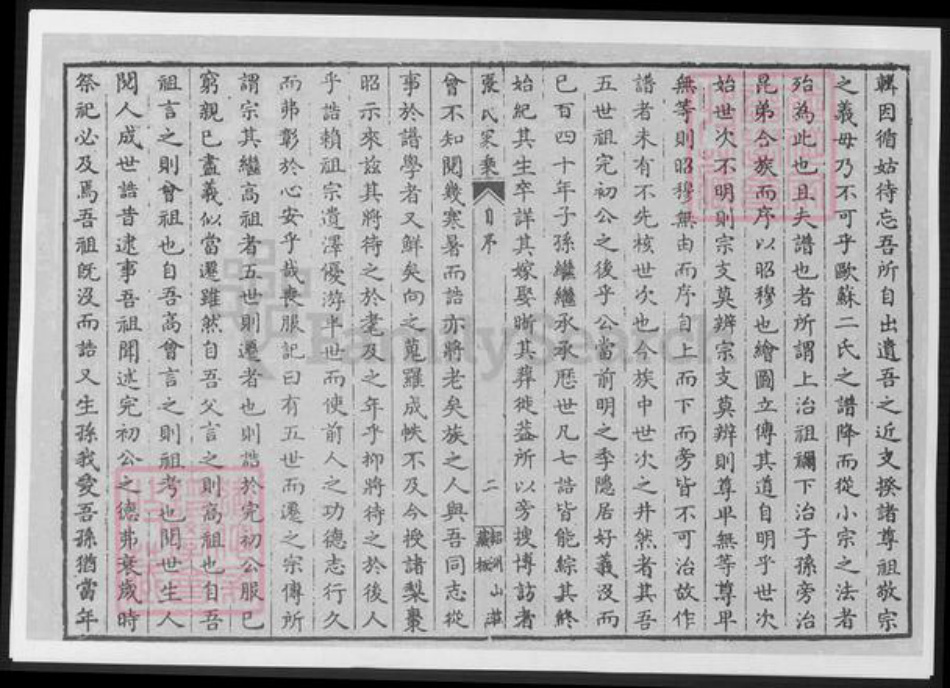 輯因循姑待忘吾所自出遺吾之近支揆諸尊祖敬宗
之義毋乃不可乎歐蘇二氏之譜降而從小宗之法者
殆為此也且夫譜也者所謂上治祖禰下治子孫旁治
昆弟合族而序以昭穆也繪圖立傳其道自明乎世次
始世次不明則宗支莫辨宗支莫辨則尊卑無等尊卑
無等則昭穆無由而序自上而下而旁皆不可治故作
譜者未有不先核世次也今族中世次之井然者其吾
五世祖完初公之後乎公當前明之季隱居好義沒而
已百四十年子孫繼繼承承歷世凡七誥皆能綜其終
始紀其生卒詳其嫁娶晣其葬徙葢所以旁搜博訪者
張氏家乘 自序 二 山莊 藏板
曾不知閱幾寒暑而誥亦將老矣族之人與吾同志從
事於譜學者又鮮矣向之蒐羅成帙不及今授諸梨棗
昭示來茲其將待之於耄及之年乎抑將待之於後人
乎誥賴祖宗遺澤優游半世而使前人之功德志行久
而弗彰於心安乎哉喪服記曰有五世而遷之宗傳所
謂宗其繼高祖者五世則遷者也則誥於完初公服已
窮親已盡義似當遷雖然自吾父言之則高祖也自吾
祖言之則曾祖也自吾高曾言之則祖考也閱世生人
閱人成世誥昔逮事吾祖聞述完初公之德弗衰歲時
祭祀必及焉吾祖旣沒而誥又生孫我愛吾孫猶當年
FamilySearch